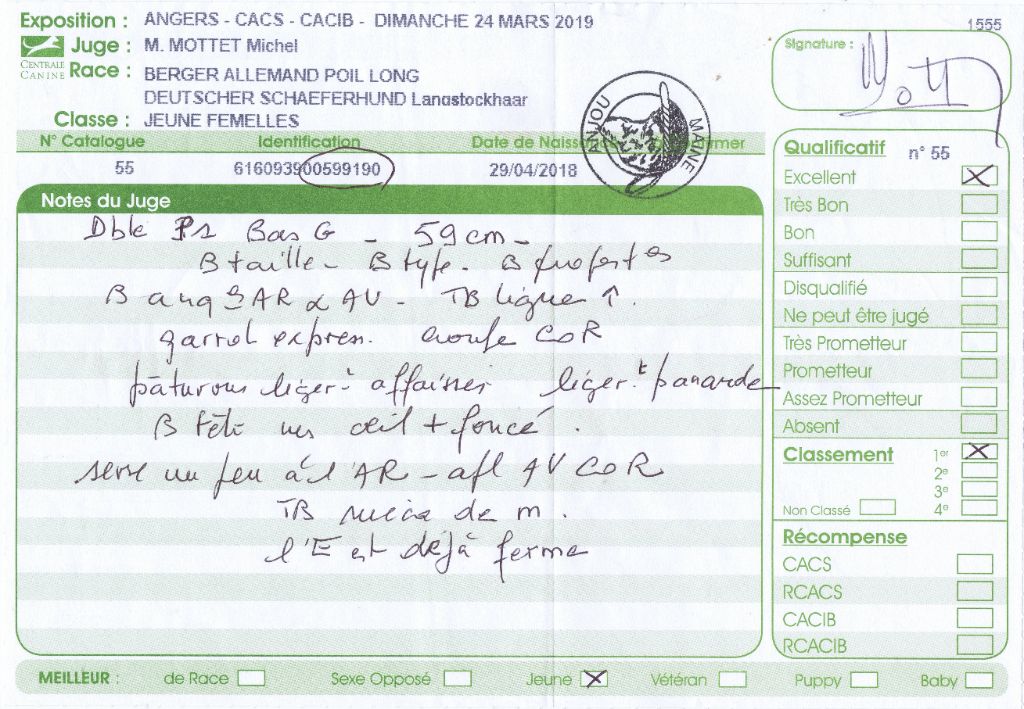 Exposition : ANGERS - CACS - CACIB - DIMANCHE 24 MARS 2019
1555
CENTRALE CANINE
Juge : M. MOTTET Michel
Race : BERGER ALLEMAND POIL LONG
DEUTSCHER SCHAEFERHUND Langstockhaar
Classe : JEUNE FEMELLES
Signature :
ANJOU MAINE
N° Catalogue Identification Date de Naiss
55 616093900599190 29/04/2018
Notes du Juge
Dble P1 Bas G - 59 cm -
B taille - B type - B prop
B ang AR & AV - TB ligne ↑.
garrot expres. croupe COR
pâturons légert affaisses léger.t panarde
B tête un œil + foncé.
serre un peu à l'AR - apl AV COR
TB de m.
l'E est déjà ferme
Qualificatif n° 55
Excellent X
Très Bon
Bon
Suffisant
Disqualifié
Ne peut être jugé
Très Prometteur
Prometteur
Assez Prometteur
Absent
Classement 1er X
2e
3e
Non Classé 4e
Récompense
CACS
RCACS
CACIB
RCACIB
MEILLEUR : de Race Sexe Opposé Jeune X Vétéran Puppy Baby